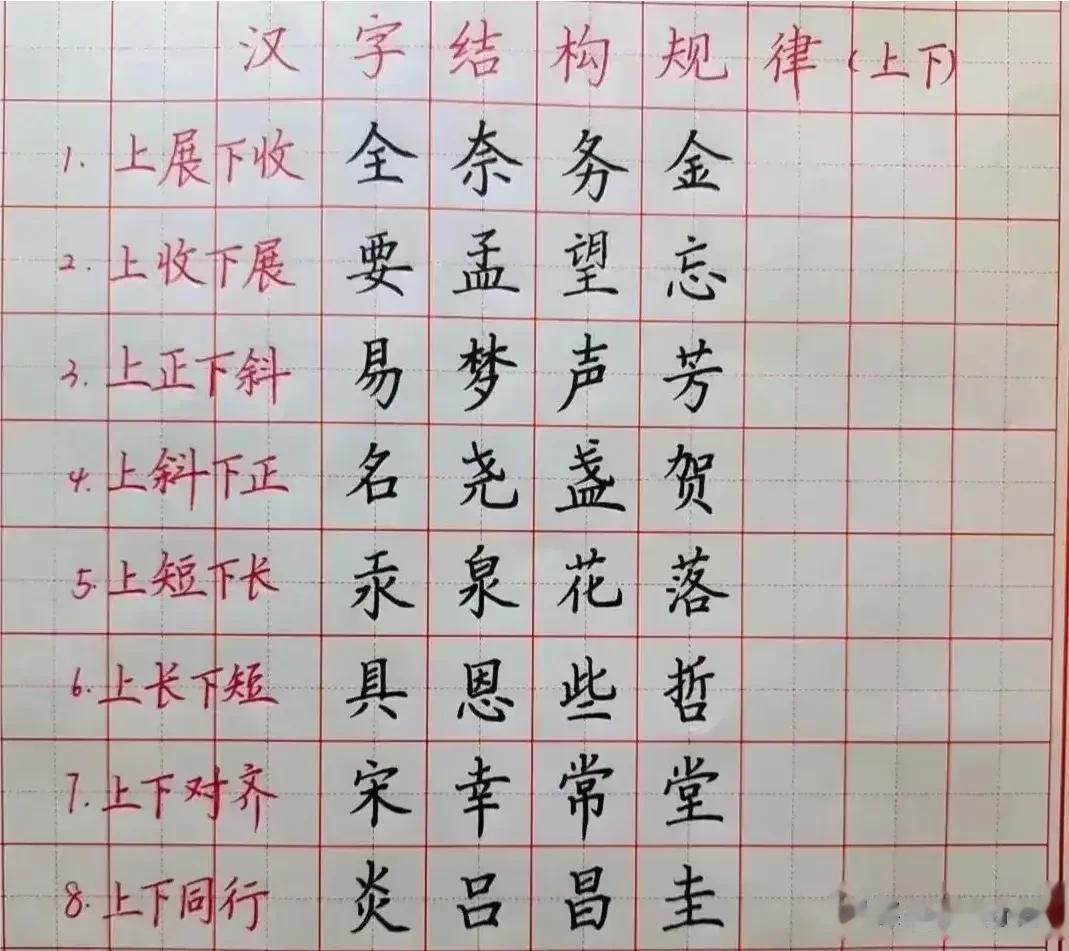 汉字结构规律(上下)
1. 上展下收 全奈务金
2. 上收下展 要孟望忘
3. 上正下斜 易梦声芳
4. 上斜下正 名尧盏贺
5. 上短下长 汞泉花落
6. 上长下短 具恩些哲
7. 上下对齐 宋幸常堂
8. 上下同行 炎吕昌圭